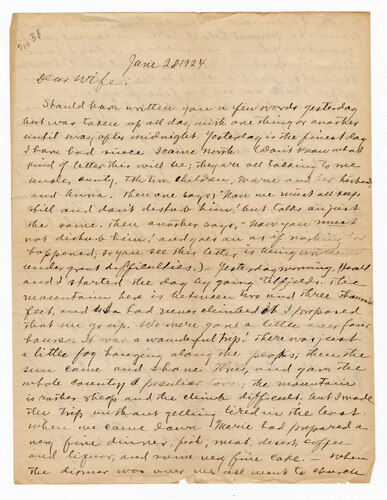 No 38
June 28 1924
Dear Wife;
Should have written you a few words yesterday
but was taken up all day with one thing or another
until way after midnight. Yesterday is the finest day
I have had since I came north. Don't know what
kind of letter this will be; they are all talking to me
uncle, aunty, the two children, Marie and her husband,
and Anna. Then one says; "Now we must all keep
still and don't disturb him", but talks on just
the same. Then another says, "Now you must
not disturb him" and goes on as if nothing had
happened, so you see this letter is being written
under great difficulties.) – Yesterday morning,
and I started the day by going The
mountain here is between two and three thousand
feet, and had never climbed it I proposed
that we go up. We were gone a little over four
hours. It was a wonderful trip! There was just
a little fog hanging along the peaks, then the
sun came and shone thru, and gave the
whole country a peculiar ; the mountain
is rather steep and the climb difficult, but I made
the trip without getting tired in the least
when we came down Marie had prepared a
very fine dinner, fish, meat, desert, coffee
and liquor, and some very fine cake. – When
the dinner was over we all went to church